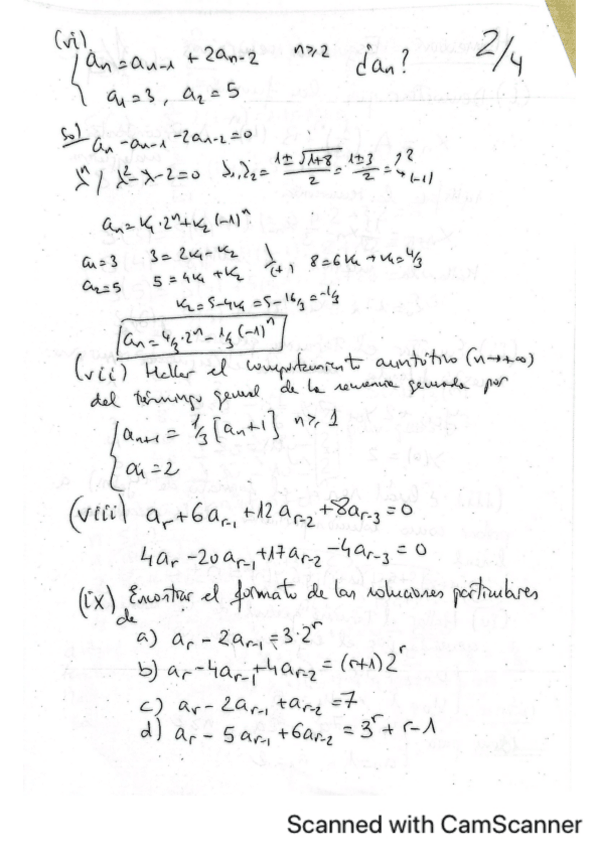 2/4
(vi)
{ an = an-1 + 2an-2 n≥2 ¿an?
a1 = 3, a2 = 5
Sol) an - an-1 - 2an-2 = 0
λ^n / λ² - λ - 2 = 0 λ1, λ2 = (1 ± √(1+8))/2 = (1 ± 3)/2 = → 2 → (-1)
an = K1·2^n + K2 (-1)^n
a1 = 3 3 = 2K1 - K2
a2 = 5 5 = 4K1 + K2 } (+) 8 = 6K1 → K1 = 4/3
K2 = 5 - 4K1 = 5 - 16/3 = -1/3
an = 4/3·2^n - 1/3 (-1)^n
(vii) Hallar el comportamiento (n→+∞)
del término general de la generada por
{ an+1 = 1/3 [an+1] n≥1
a1 = 2
(viii) ar + 6ar-1 + 12ar-2 + 8ar-3 = 0
4ar - 20ar-1 + 17ar-2 - 4ar-3 = 0
(ix) Encontrar el formato de las soluciones particulares
de
a) ar - 2ar-1 = 3·2^r
b) ar - 4ar-1 + 4ar-2 = (r+1)2^r
c) ar - 2ar-1 + ar-2 = 7
d) ar - 5ar-1 + 6ar-2 = 3^r + r - 1
Scanned with CamScanner